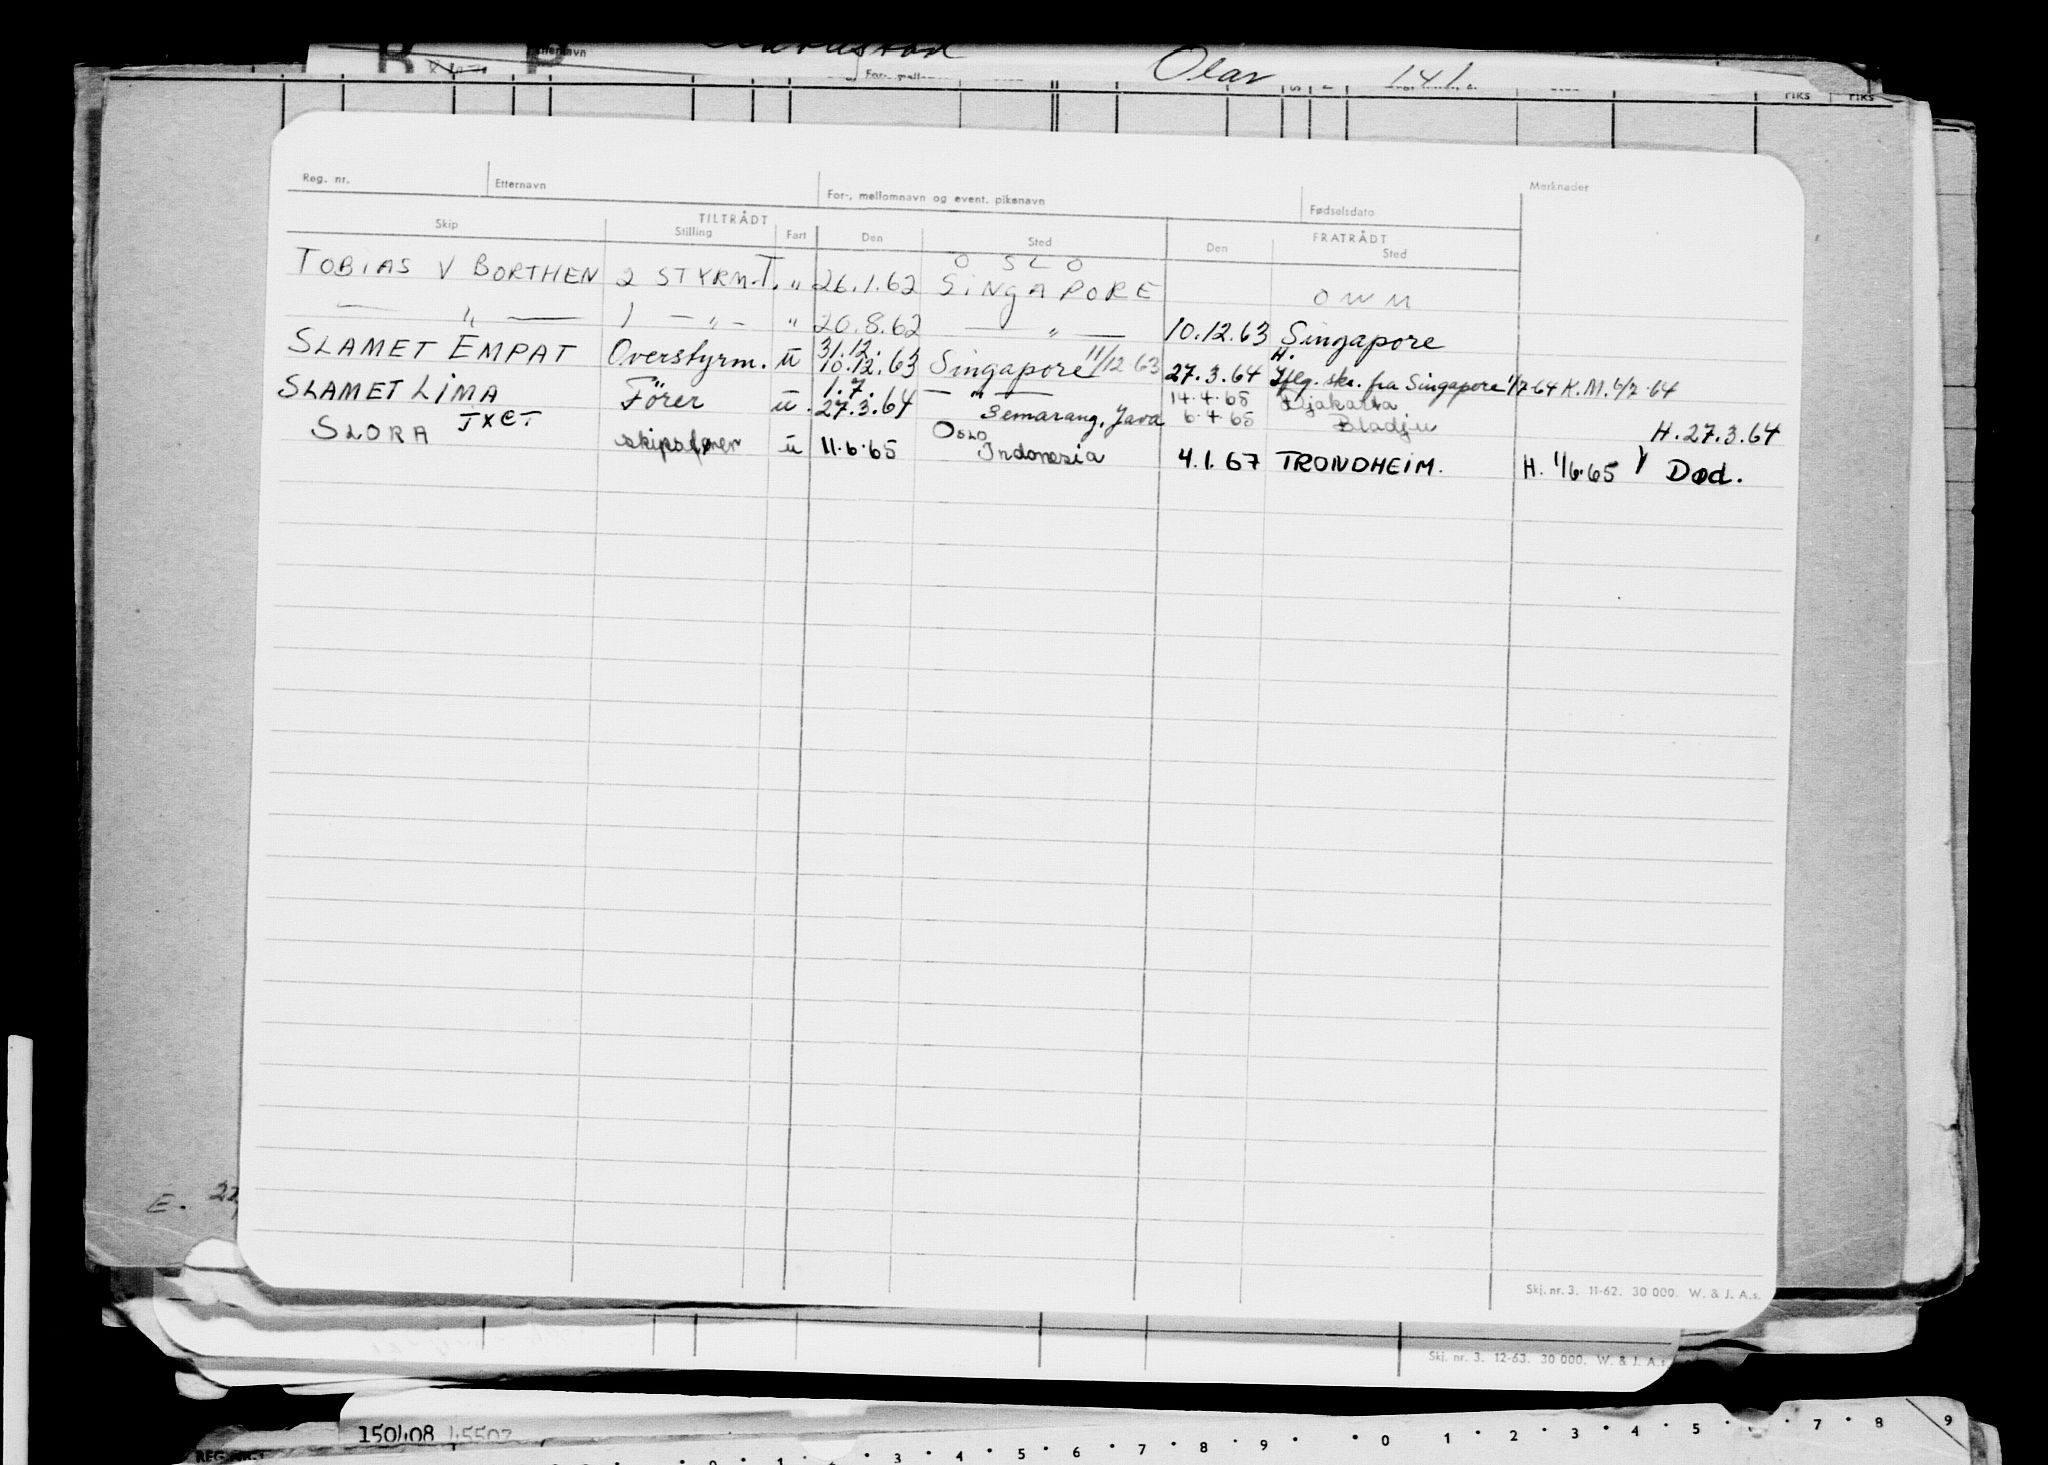 B P Etternavn
Olav 141
For-, mellom
FIKS FIKS
Reg. nr. Etternavn For-, mellomnavn og event. pikenavn Fødselsdato Merknader
TILTRÅDT FRATRÅDT
Skip Stilling Fart Den Sted Den Sted
OSLO
TOBIAS V BORTHEN 2 STYRM.T. " 26.1.62 SiNgAPORE OWM
— " — 1 — " — " 20.8.62 — " — 10.12.63 Singapore
31.12. H.
SLAMET EMPAT Overstyrm. u 10.12.63 Singapore 11/12 63 27.3.64 Iflg. skr. fra Singapore 1/7-64 K.M. 6/7-64
1.7. — " — 14.4.65 Djakarta
SLAMET LiMA Förer u. 27.3.64 Semarang, Java 6.4.65 Bladju H.27.3.64
TXCT Oslo
SLORA skipsfører u 11.6.65 Indonesia 4.1.67 TRONDHEIM. H. 1/6.65 Død.
E. 22
Skj. nr. 3. 11-62. 30 000. W. & J. A.s.
Skj. nr. 3. 12-63. 30 000. W. & J. A.s
150408 45507
REG. NR.
0 1 2 3 4 5 6 7 8 9 0 1 2 3 4 5 7 8 9